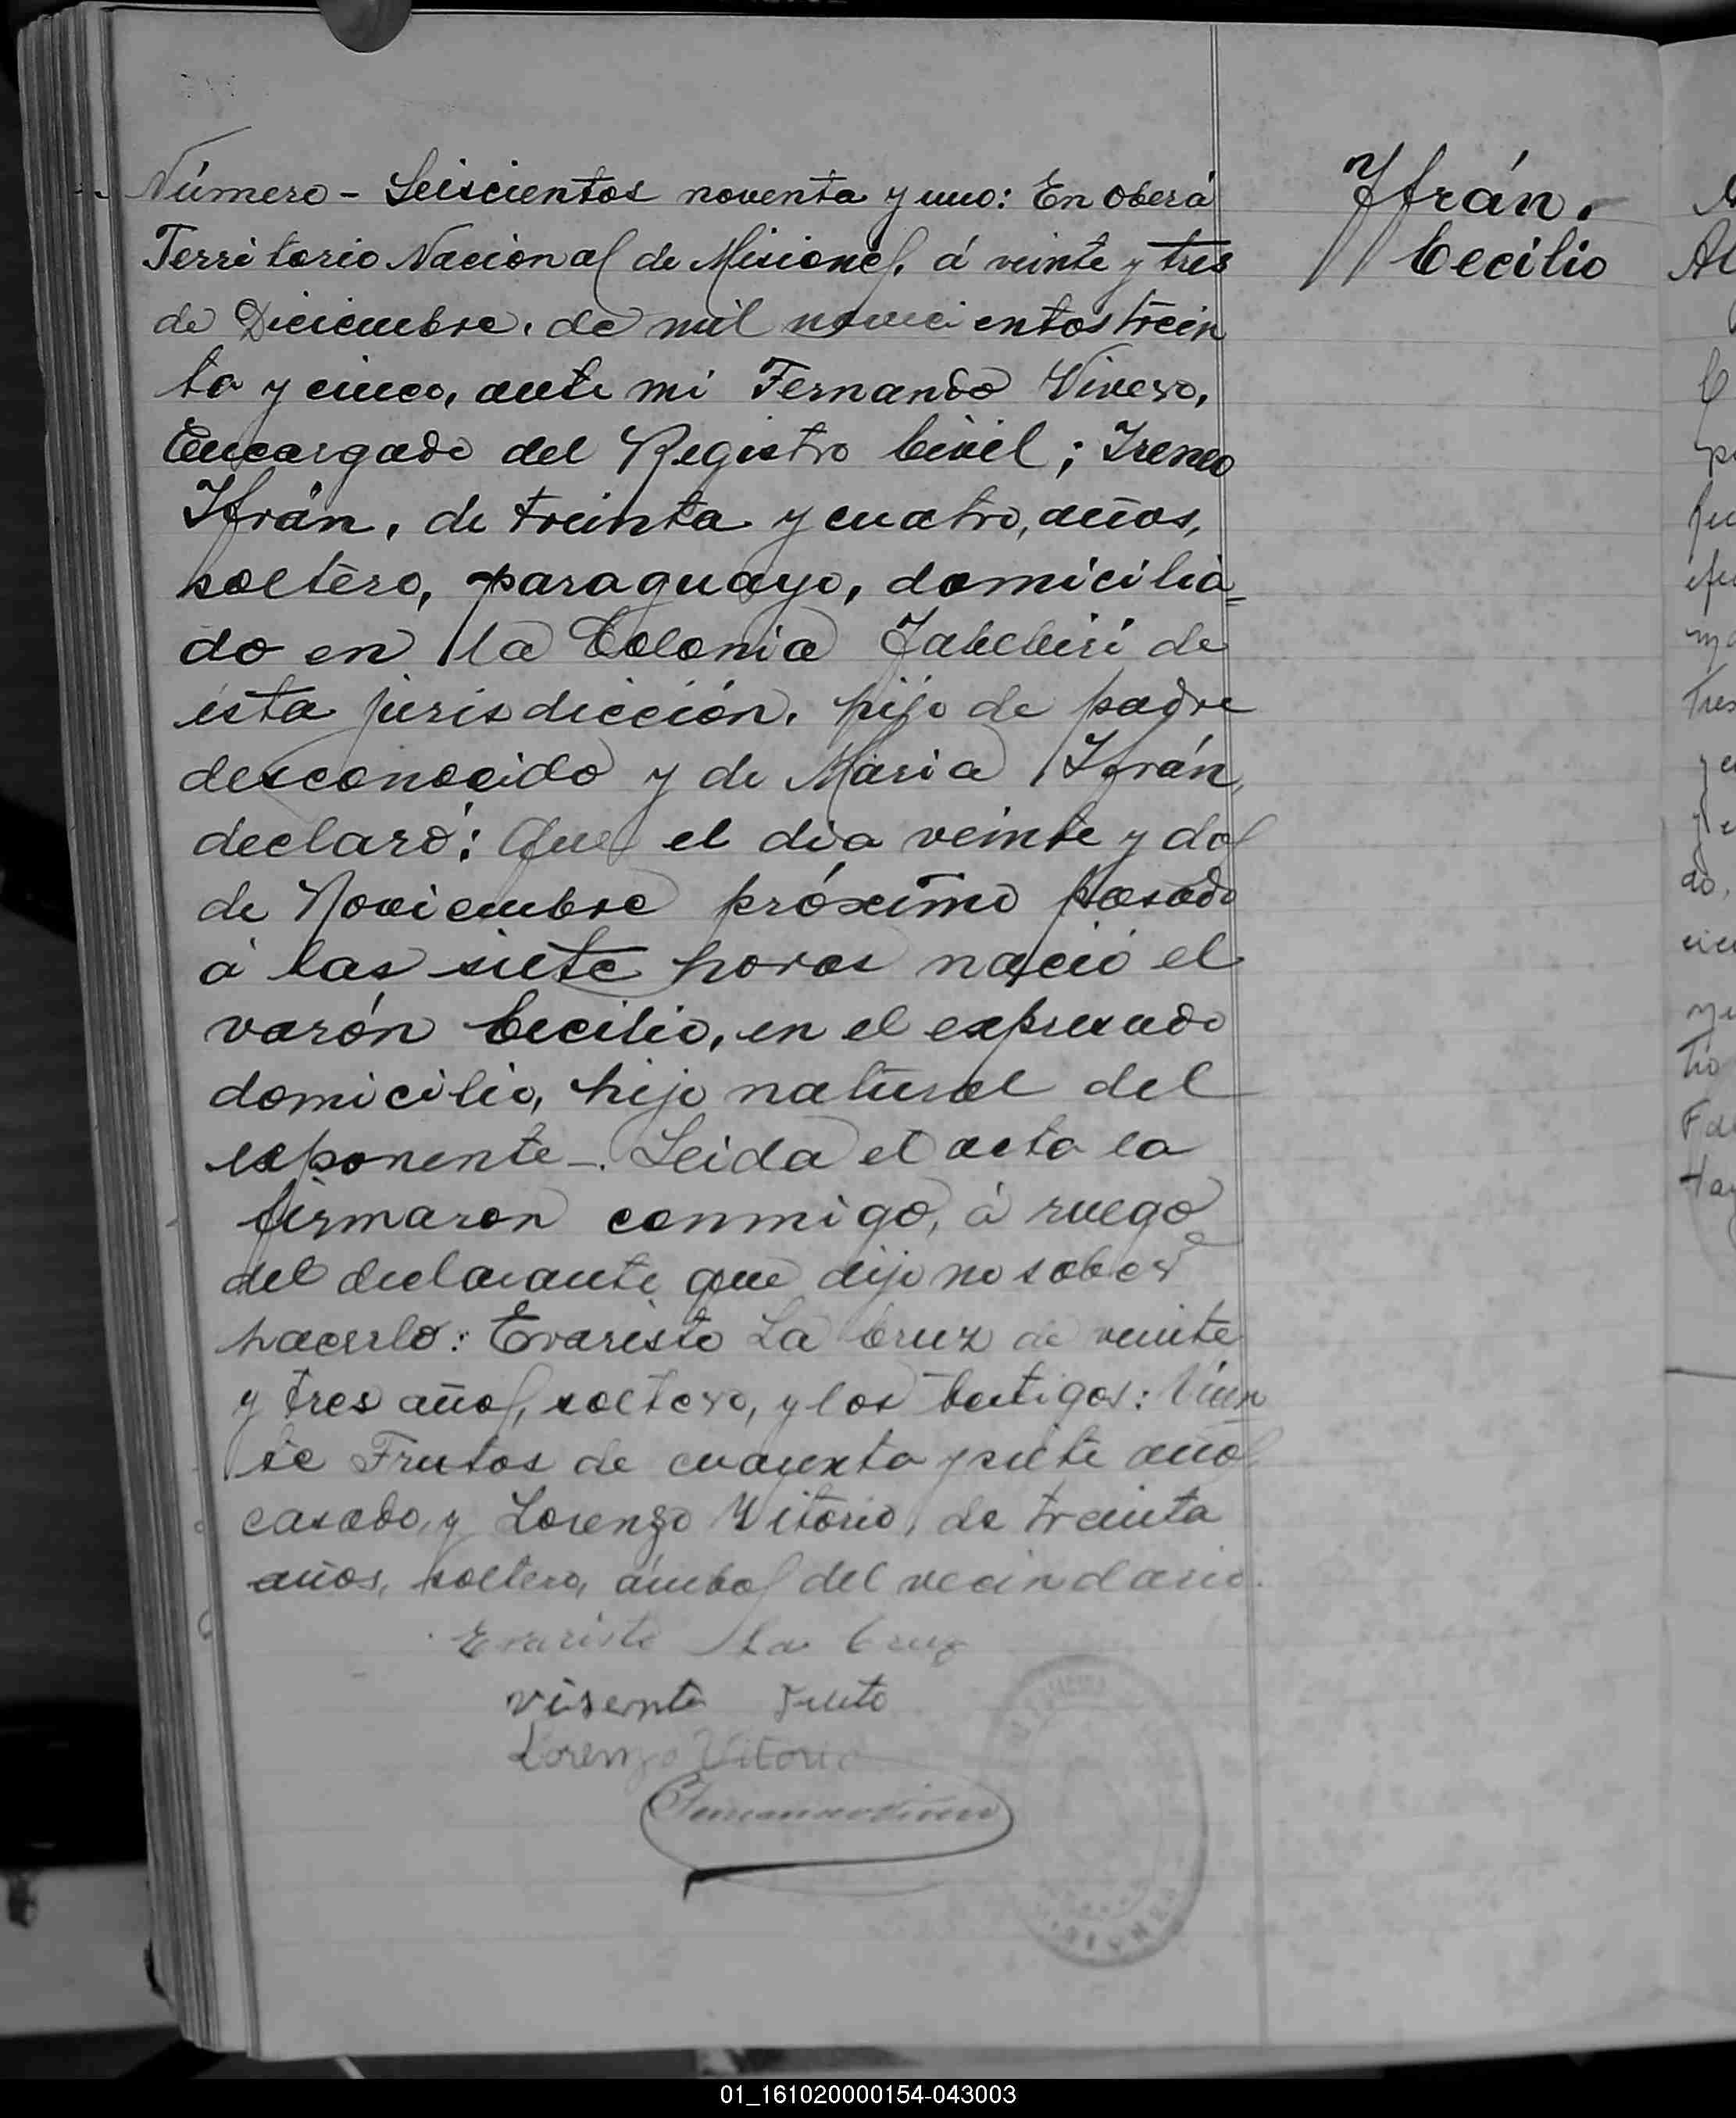 Número - Seiscientos noventa y uno: En Oberá
Territorio Nacional de Misiones, á veinte y tres
de Diciembre, de mil novecientos trein
ta y cinco, ante mi Fernando Vivero,
Encargado del Registro Civil; Ireneo
Ifrán, de treinta y cuatro, años,
soltero, paraguayo, domicilia=
do en la Colonia Jabebirí de
ésta jurisdicción, hijo de padre
desconocido y de Maria Ifrán,
declaró: Que el dia veinte y dos
de Noviembre próximo pasado
á las siete horas nació el
varón Cecilio, en el expresado
domicilio, hijo natural del
exponente-. Leida el acta la
firmaron conmigo, á ruego
del declarante que dijo no saber
hacerlo: Evaristo La Cruz de veinte
y tres años, soltero, y los testigos: Vicen
te Frutos de cuarenta y siete años
casado, y Lorenzo Vitorio, de treinta
años, soltero, ámbos del vecindario.
Evaristo La Cruz
Visente Fruto
Lorenzo Vitorio
Fernando Vivero
MISIONES
Ifrán.
Cecilio
01_161020000154-043003